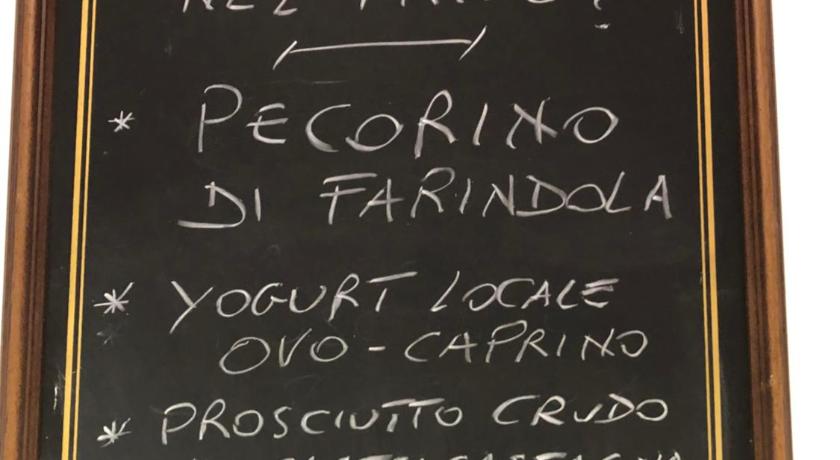 * PECORINO
DI FARINDOLA
* YOGURT LOCALE
OVO-CAPRINO
* PROSCIUTTO CRUDO